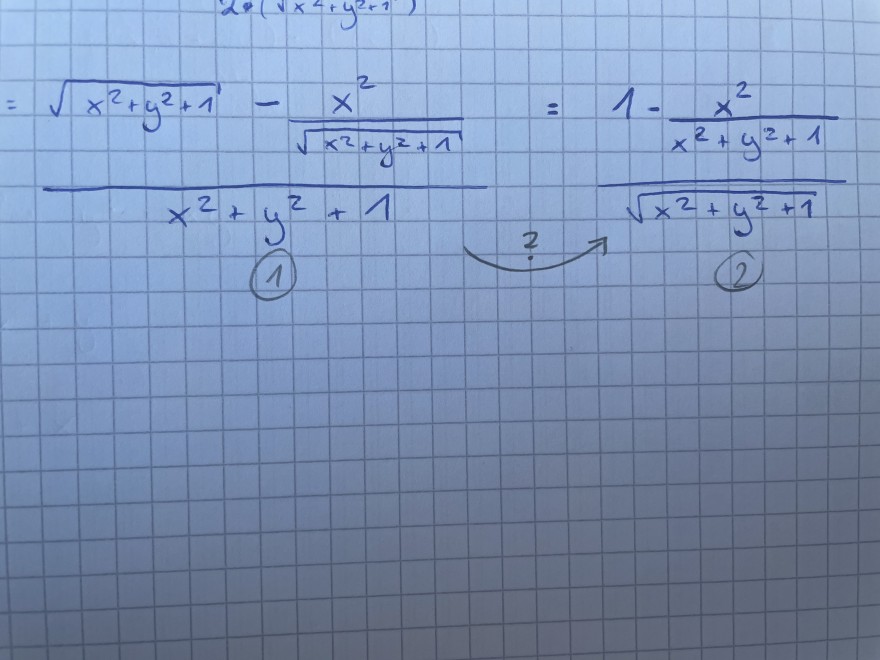 2·(√x²+y²+1)
= √x²+y²+1 - x² = 1 - x²
√x²+y²+1 x²+y²+1
x²+y²+1 √x²+y²+1
?
① ②